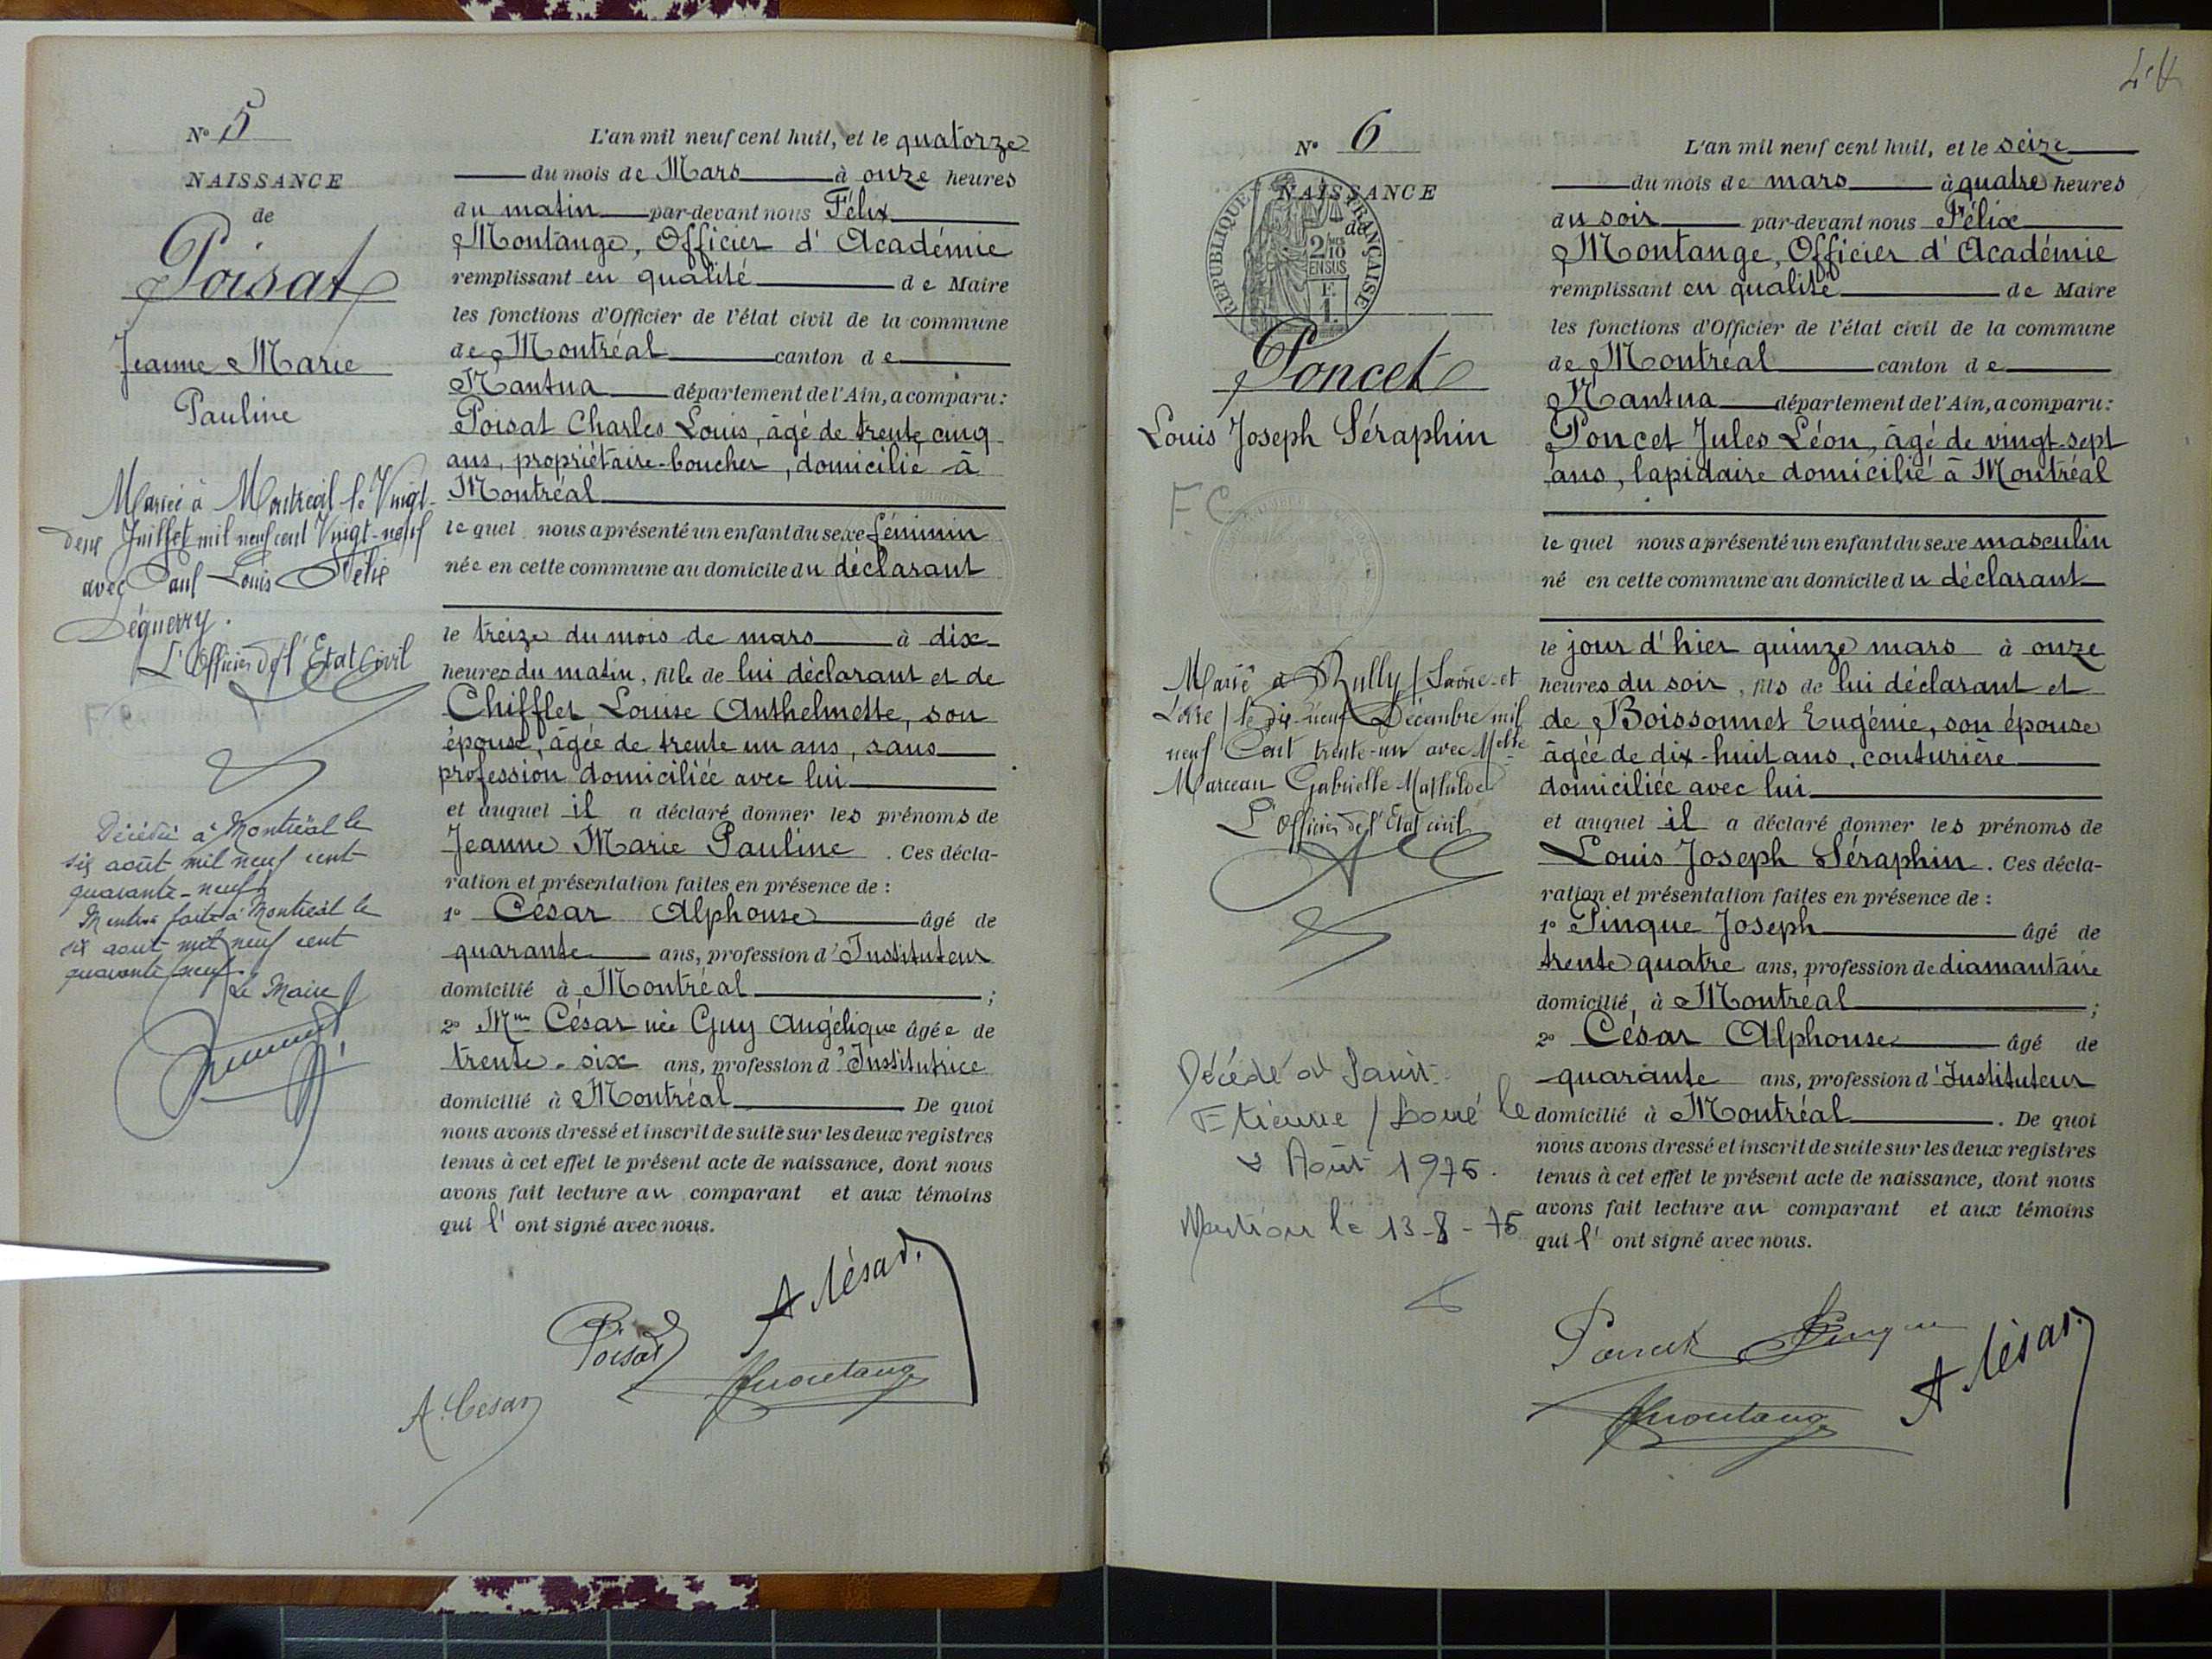 N° 5
NAISSANCE
de
Poisat
Jeanne Marie
Pauline
Mariée à Montréal le Vingt-
deux Juillet mil neuf cent Vingt-neuf
avec Paul Louis Félix
Déguerry.
L'Officier de l'Etat Civil
Décédée à Montréal le
six août mil neuf cent
quarante-neuf
Mention faite à Montréal le
six août mil neuf cent
quarante neuf.
Le Maire
L'an mil neuf cent huit, et le quatorze
du mois de Mars à onze heures
du matin par-devant nous Félix
Montange, Officier d'Académie
remplissant en qualité de Maire
les fonctions d'Officier de l'état civil de la commune
de Montréal canton de
Nantua département de l'Ain, a comparu:
Poisat Charles Louis, âgé de trente cinq
ans, propriétaire-boucher, domicilié à
Montréal
lequel nous a présenté un enfant du sexe féminin
née en cette commune au domicile du déclarant
le treize du mois de mars à dix
heures du matin, fille de lui déclarant et de
Chifflet Louise Anthelmette, son
épouse, âgée de trente un ans, sans
profession domiciliée avec lui
et auquel il a déclaré donner les prénoms de
Jeanne Marie Pauline. Ces décla-
ration et présentation faites en présence de :
1° César Alphonse âgé de
quarante ans, profession d'Instituteur
domicilié à Montréal ;
2° Mme César née Guy Angélique âgée de
trente-six ans, profession d'Institutrice
domicilié à Montréal De quoi
nous avons dressé et inscrit de suite sur les deux registres
tenus à cet effet le présent acte de naissance, dont nous
avons fait lecture au comparant et aux témoins
qui l'ont signé avec nous.
A César.
Poisat
Fmontange
A. César
N° 6
NAISSANCE
de
RÉPUBLIQUE FRANÇAISE
2/10 EN SUS
Poncet
Louis Joseph Séraphin
FC
Marié à Rully / Saône-et
Loire / le dix-neuf Décembre mil
neuf Cent trente-un avec Melle
Marceau Gabrielle Mathilde
L'Officier de l'Etat civil
Décédé à Saint-
Etienne / Loire le
2 Août 1975.
Mention le 13-8-75
L'an mil neuf cent huit, et le seize
du mois de mars à quatre heures
du soir par-devant nous Félix
Montange, Officier d'Académie
remplissant en qualité de Maire
les fonctions d'Officier de l'état civil de la commune
de Montréal canton de
Nantua département de l'Ain, a comparu:
Poncet Jules Léon, âgé de vingt-sept
ans, lapidaire domicilié à Montréal
lequel nous a présenté un enfant du sexe masculin
né en cette commune au domicile du déclarant
le jour d'hier quinze mars à onze
heures du soir, fils de lui déclarant et
de Boissonnet Eugénie, son épouse
âgée de dix-huit ans, couturière
domiciliée avec lui
et auquel il a déclaré donner les prénoms de
Louis Joseph Séraphin. Ces décla-
ration et présentation faites en présence de :
1° Pinque Joseph âgé de
trente quatre ans, profession de diamantaire
domicilié à Montréal ;
2° César Alphonse âgé de
quarante ans, profession d'Instituteur
domicilié à Montréal. De quoi
nous avons dressé et inscrit de suite sur les deux registres
tenus à cet effet le présent acte de naissance, dont nous
avons fait lecture au comparant et aux témoins
qui l'ont signé avec nous.
Poncet Pinque
A César.
Fmontange